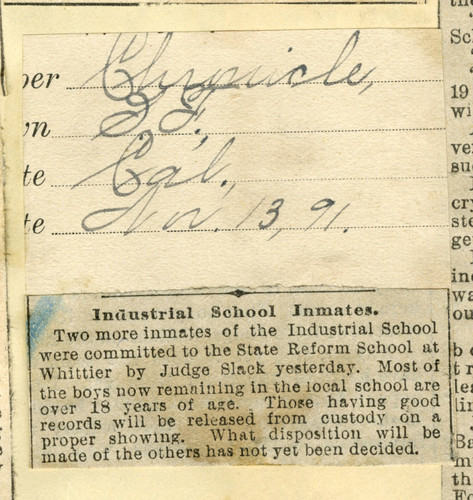 per Chronicle,
wn S. F.,
te Cal.,
te Nov. 13, 91.
Industrial School Inmates.
Two more inmates of the Industrial School
were committed to the State Reform School at
Whittier by Judge Slack yesterday. Most of
the boys now remaining in the local school are
over 18 years of age. Those having good
records will be released from custody on a
proper showing. What disposition will be
made of the others has not yet been decided.